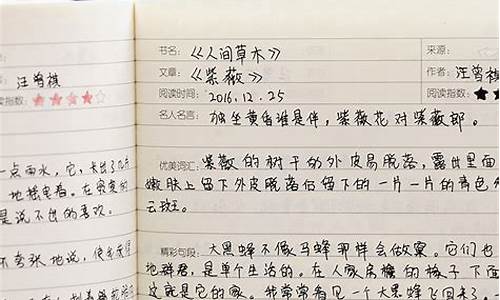 汪曾祺
阅读指数：
一点雨水，它，卡出了几片
地摇曳着。在寂寞的
是说不出的喜欢。
不夸张地说，使我觉得
书名：《人间草木》
来源：
文章：《紫薇》
作者：汪曾祺
阅读时间：2016.12.25
阅读指数：
名人名言：独坐黄昏谁是伴，紫薇花对紫薇郎。
优美词汇：紫薇的树干的外皮易脱落，露出里面
嫩肤上留下外皮脱落后留下的一片一片的青色
云斑。
精彩句段：大黑蜂不像马蜂那样会做窠。它们也
地群居，是单个生活的。在人家房檐的椽子下面
这就是它的家。我常常看见一个大黑蜂飞回来了